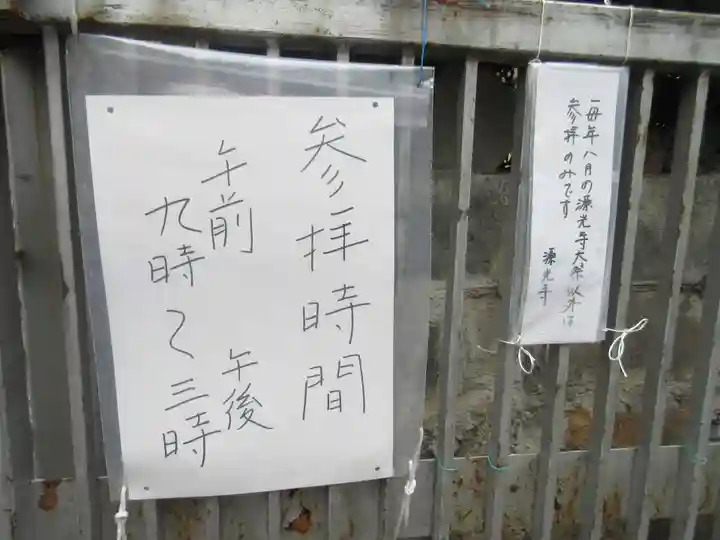 参拝時間
午前　午後
九時〜三時
毎年八月の源光寺大祭以外は
参拝のみです
源光寺